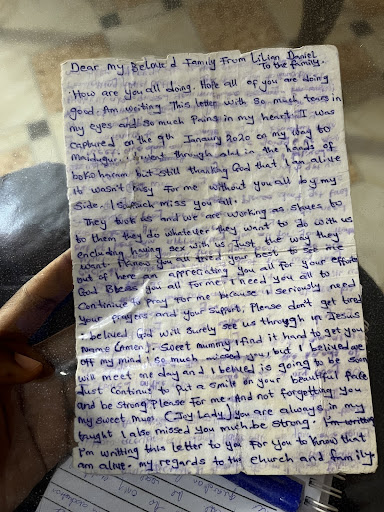 Dear my Beloved Family From Lilian Daniel
To the family.
How are you all doing. Hope all of you are doing
good. Am writing This letter with so much tears in
my eyes and so much Pains in my heart. I was
captured on the 9th January 2020 on my way to
Maiduguri. I went through alot in the hands of
boko haram but still thanking God that I am alive
It wasn't easy For me without you all by my
side. I so much miss you all.
They took us and we are working as slaves to
to them they do whatever they want to do with us
encluding having sex with us Just the way they
want. Please you all try your best to see me
out of here am appreciating you all for your efforts
God Bless you all For me. I need you all to
Continue to pray For me because I seriously need
Your prayers and your support. Please don't get tired
beloved God will Surely see us through in Jesus
Name (Amen). Sweet mummy I find it hard to get you
off my mind I so much missed you, but I belived we
will meet one day and I belived is going to be soon
Just Continue to put a smile on your beautiful face
and be strong Please For me. And not forgetting you
my sweet mum. (Joy Lady) you are always in my
taught I also missed you much. be strong. I'm writting
I'm writting this letter to you For you to know that
am alive. my regards to the church and family